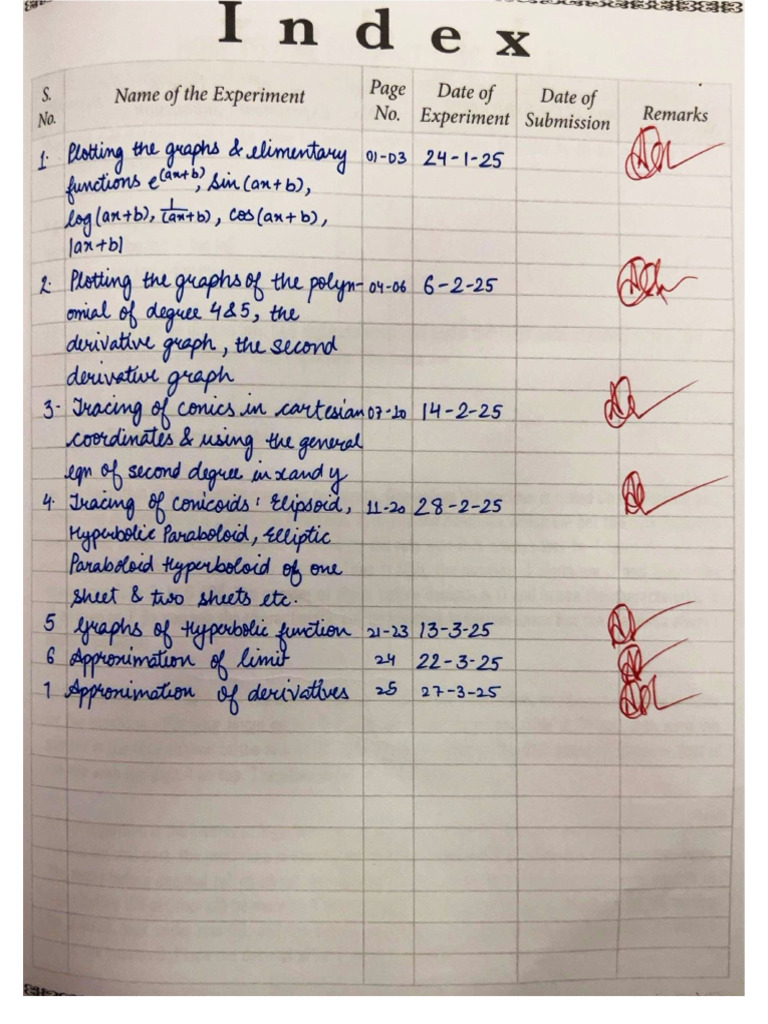 Index
S. No. Name of the Experiment Page No. Date of Experiment Date of Submission Remarks
1. Plotting the graphs & elimentary 01-03 24-1-25
functions e^(ax+b), sin(ax+b),
log(ax+b), 1/(ax+b), cos(ax+b),
|ax+b|
2. Plotting the graphs of the polyn- 04-06 6-2-25
omial of degree 4&5, the
derivative graph, the second
derivative graph
3- Tracing of conics in cartesian 07-10 14-2-25
coordinates & using the general
eqn of second degree in x and y
4. Tracing of conicoids: Elipsoid, 11-20 28-2-25
Hyperbolic Paraboloid, Elliptic
Paraboloid Hyperboloid of one
sheet & two sheets etc.
5 Graphs of Hyperbolic function 21-23 13-3-25
6 Approximation of limit 24 22-3-25
7 Approximation of derivatives 25 27-3-25